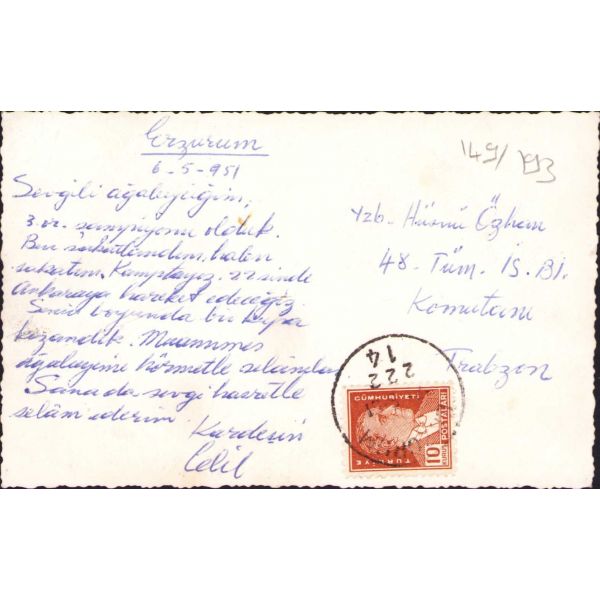 Erzurum
6-5-951
Sevgili ağabeyciğim,
3.cü şampiyonu olduk.
Ben
Kamptayız. 22 sinde
Ankaraya hareket edeceğiz.
Sene boyunda bir kupa
kazandık. Muammer
ağabeyime hörmetle selâmlar
Sana da sevgi hasretle
selâm ederim
Kardeşin
Celil
149/793
Yzb. Hüsnü Özhan
48. Tüm. İS. Bl.
Komutanı
Trabzon
222
14
CÜMHURİYETİ
POSTALARI
10 KURUŞ
TÜRKİYE